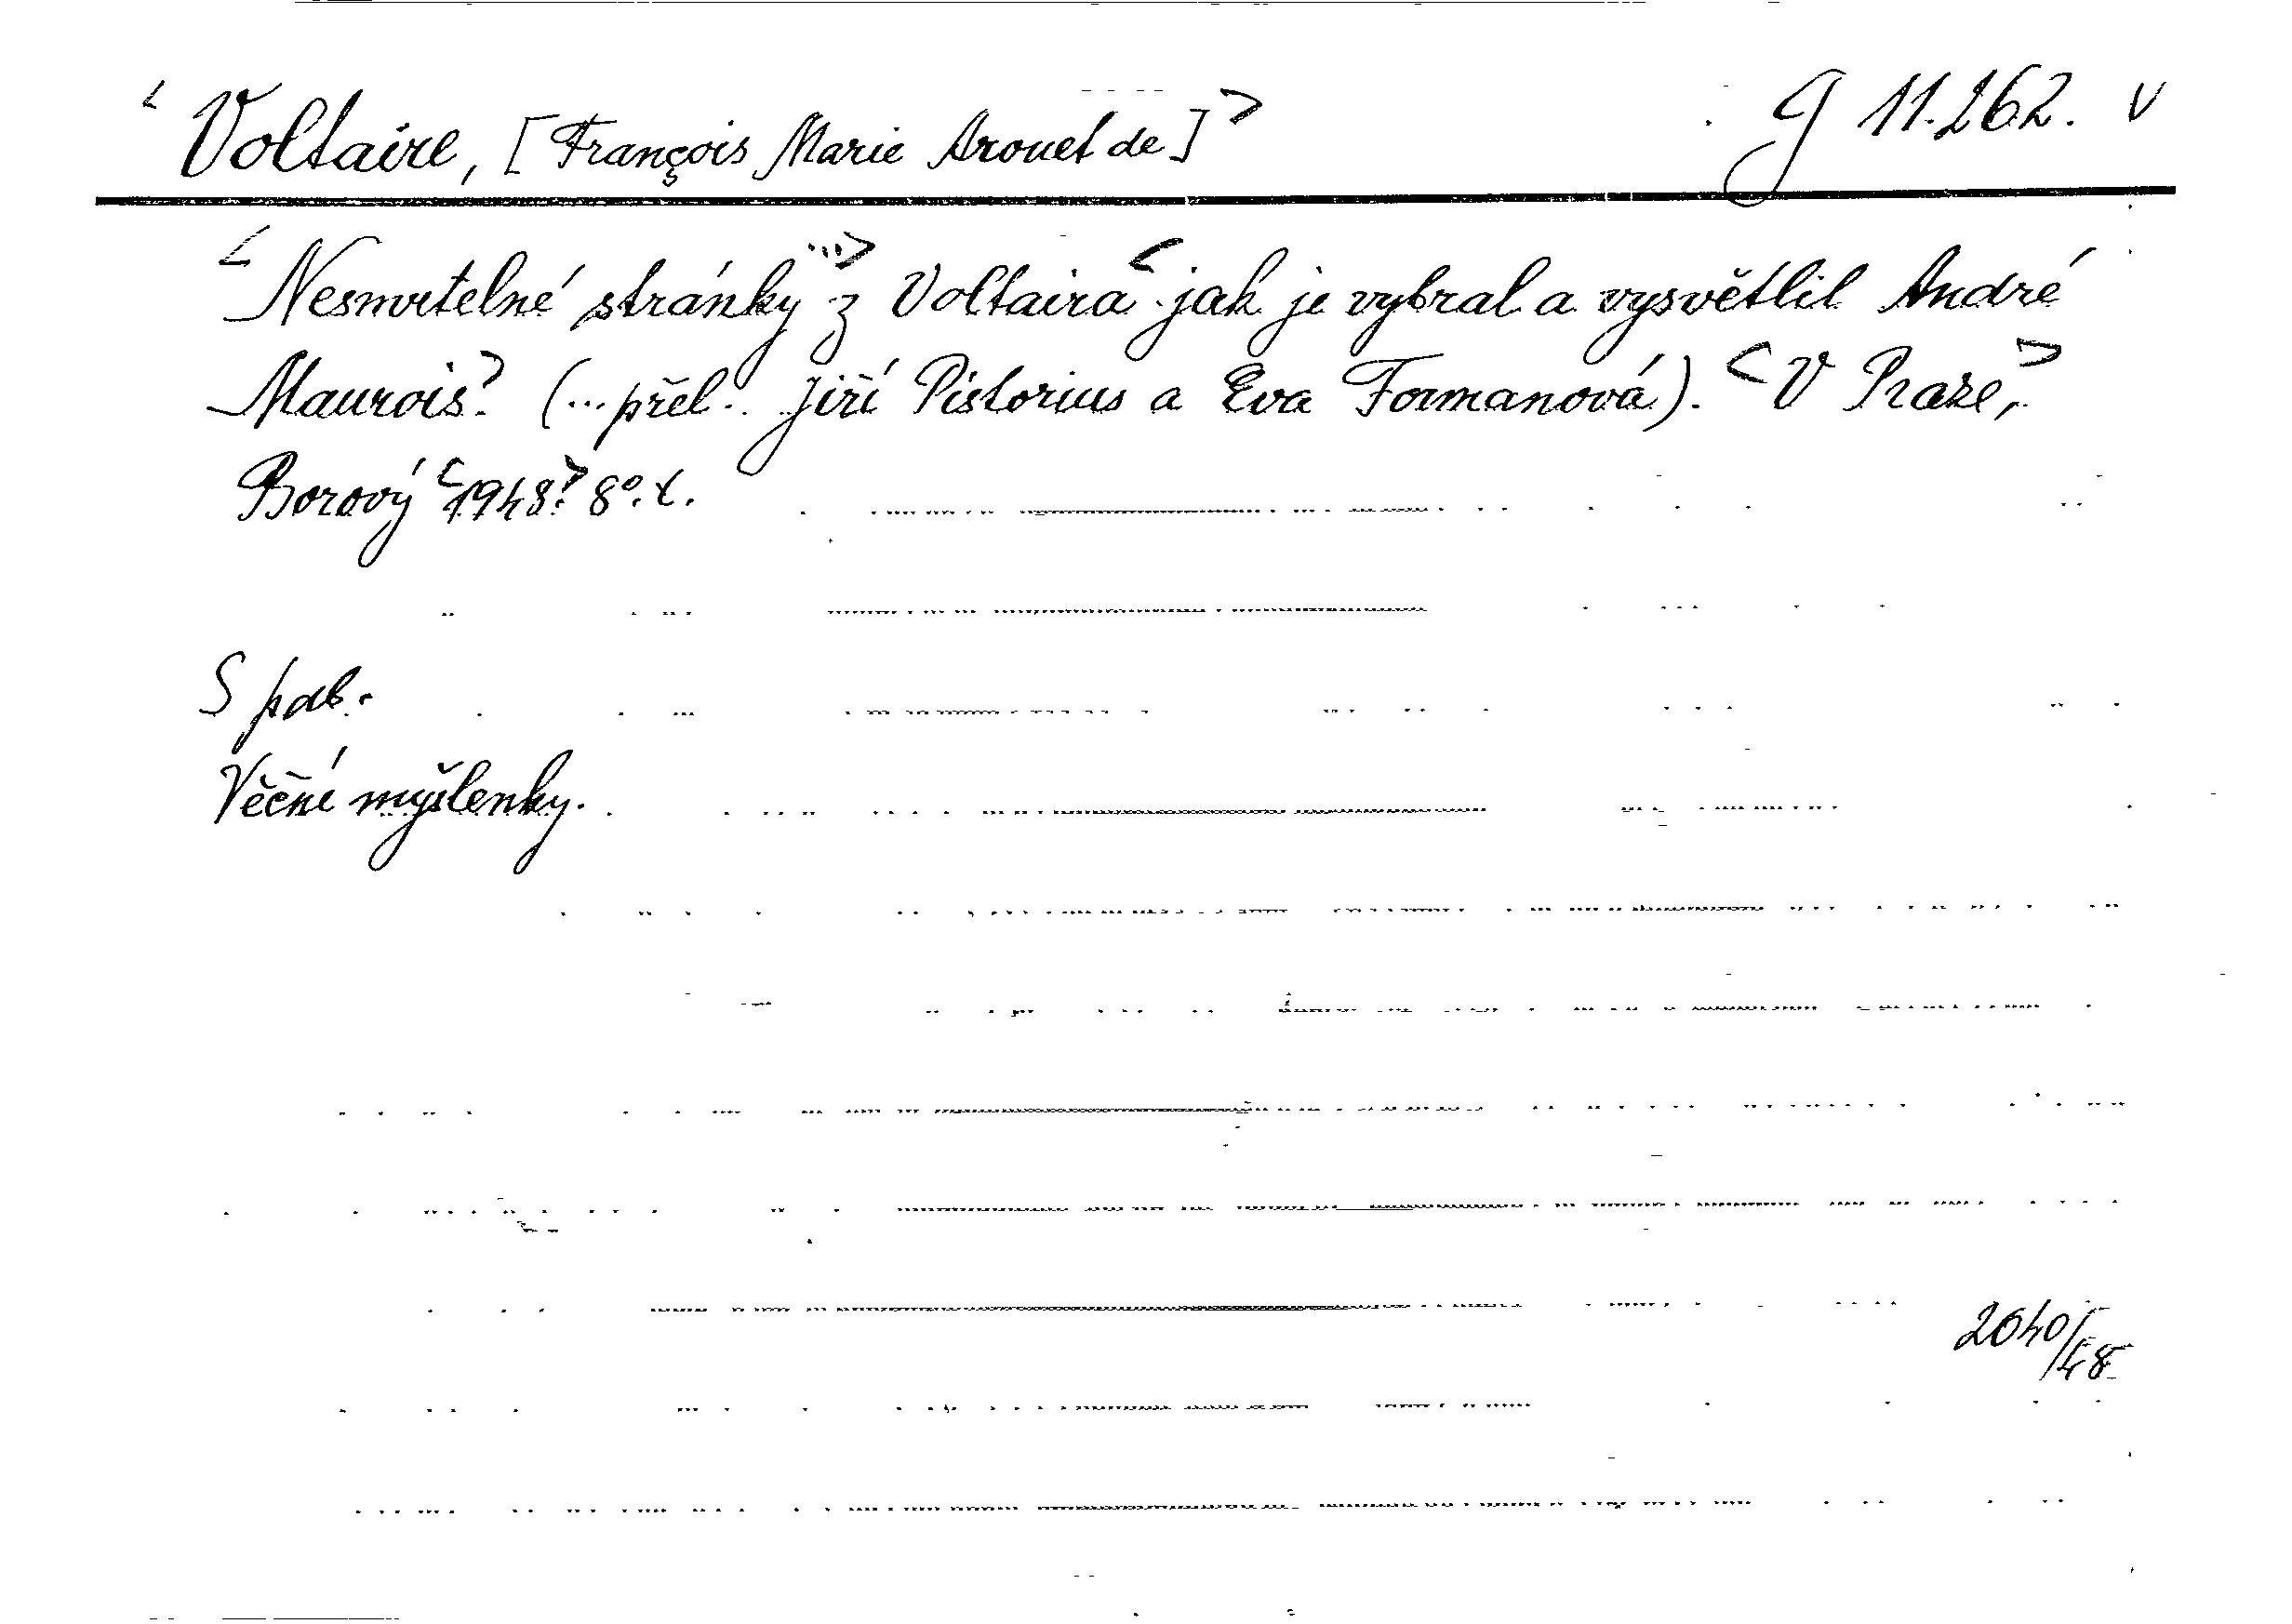 < Voltaire, [François Marie Arouet de] > g 11.262. v
< Nesmrtelné stránky ...> z Voltaira < jak je vybral a vysvětlil André
Maurois> (... přel. Jiří Pistorius a Eva Formanová). < V Praze, >
Borový <1948> 8°. č.
S pdb.
Věčné myšlenky.
2040/48